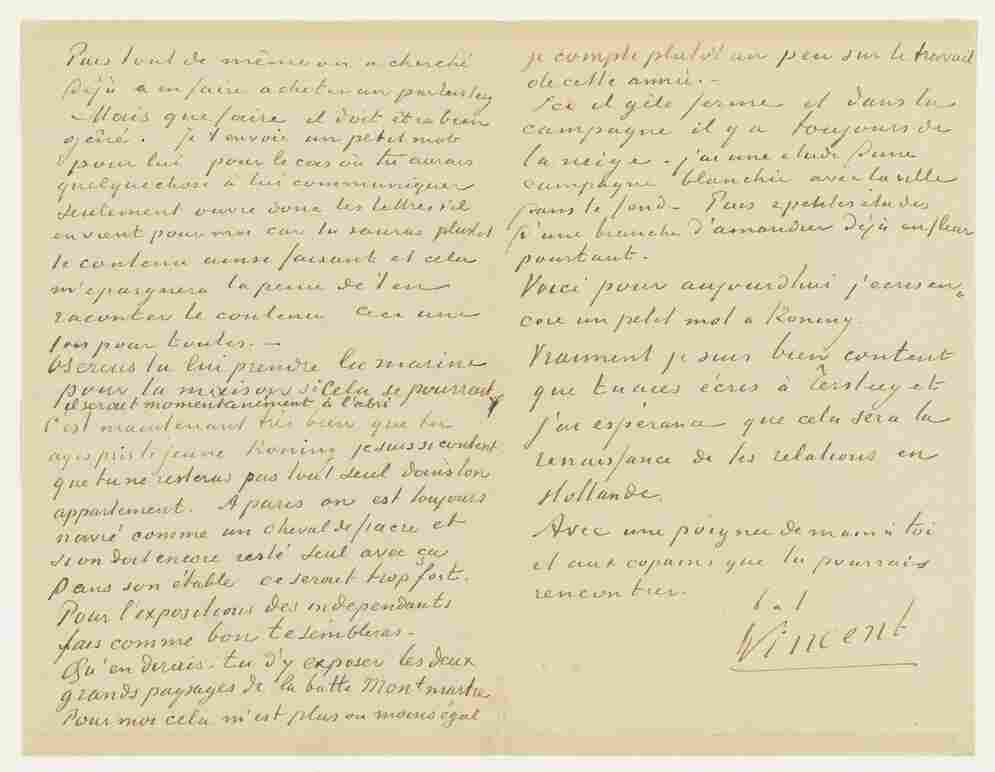 Puis tout de même on a cherché
déjà à en faire acheter un par tersteeg
Mais que faire il doit être bien
gêné. Je t'envoie un petit mot
pour lui pour le cas où tu aurais
quelquechose à lui communiquer
seulement ouvre donc les lettres s'il
en vient pour moi car tu sauras plustot
le contenu ainsi faisant et cela
m'epargnera la peine de t'en
raconter le contenu Ceci une
fois pour toutes. —
Oserais tu lui prendre la marine
pour la maison si cela se pourrait
il serait momentanement à l'abri
C'est maintenant très bien que tu
ayes pris le jeune Koning je suis si content
que tu ne resteras pas tout seul dans ton
appartement. A paris on est toujours
navré comme un cheval de fiacre et
si on doit encore resté seul avec ça
dans son étable ce serait trop fort.
Pour l'expositions des independants
fais comme bon te sembleras.
Qu'en dirais-tu d'y exposer les deux
grands paysages de la butte Montmartre
Pour moi cela m'est plus ou moins égal
je compte plutot un peu sur le travail
de cette année. —
Ici il gèle ferme et dans la
campagne il y a toujours de
la neige — j'ai une etude d'une
campagne blanchie avec la ville
dans le fond — Puis 2 petites études
d'une branche d'amandier déjà en fleur
pourtant.
Voici pour aujourd'hui j'ecris en-
core un petit mot à Koning.
Vraiment je suis bien content
que tu aies écris à Tersteeg et
j'ai esperance que cela sera la
renaissance de tes relations en
Hollande.
Avec une poignee de main à toi
et aux copains que tu pourrais
rencontrer.
t. à t.
Vincent